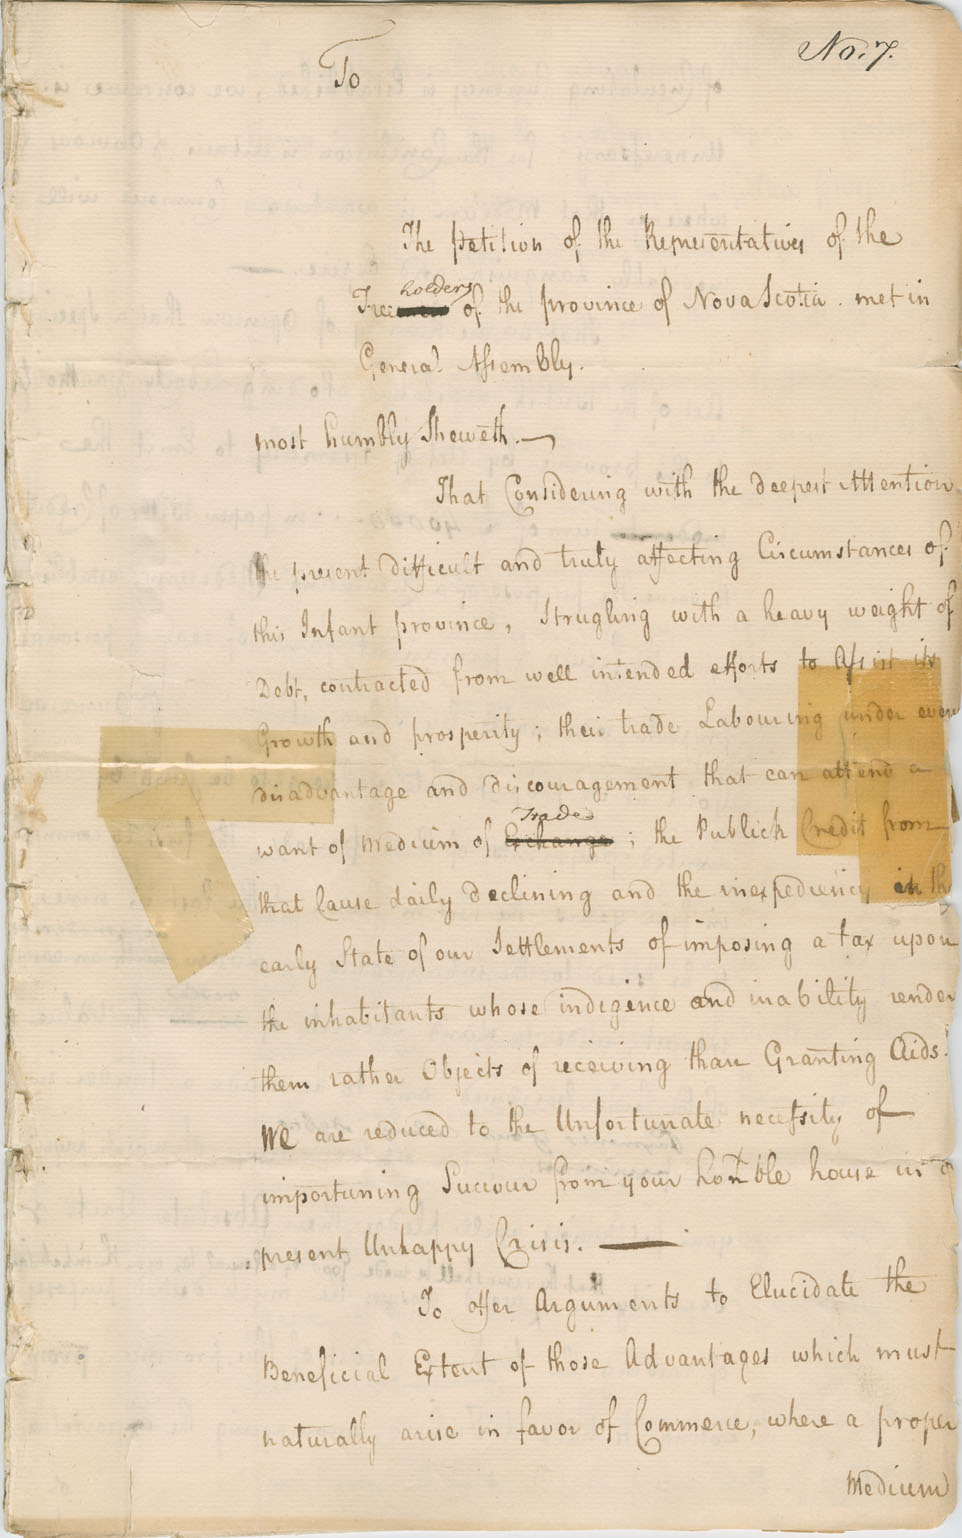 No. 7.
To
The petition of the Representatives of the
holders
Free of the province of Nova Scotia. met in
General Assembly.
most humbly Sheweth.—
That Considering with the deepest Attention
the present difficult and truly affecting Circumstances of
this Infant province, Strugling with a heavy weight of
Debt, contracted from well intended efforts to Assist its
Growth and prosperity; their trade Labouring under every
disadvantage and discouragement that can attend a
Trade
want of Medium of Exchange ; the Publick Credit from
that Cause daily declining and the inexpediency in the
early State of our Settlements of imposing a tax upon
the inhabitants whose indigence and inability render
them rather Objects of receiving than Granting Aids.
We are reduced to the Unfortunate necessity of
importuning Succour from your honble house in
present Unhappy Crisis. —
To offer Arguments to Elucidate the
Beneficial Extent of those Advantages which must
naturally arise in favor of Commerce, where a proper
Medium